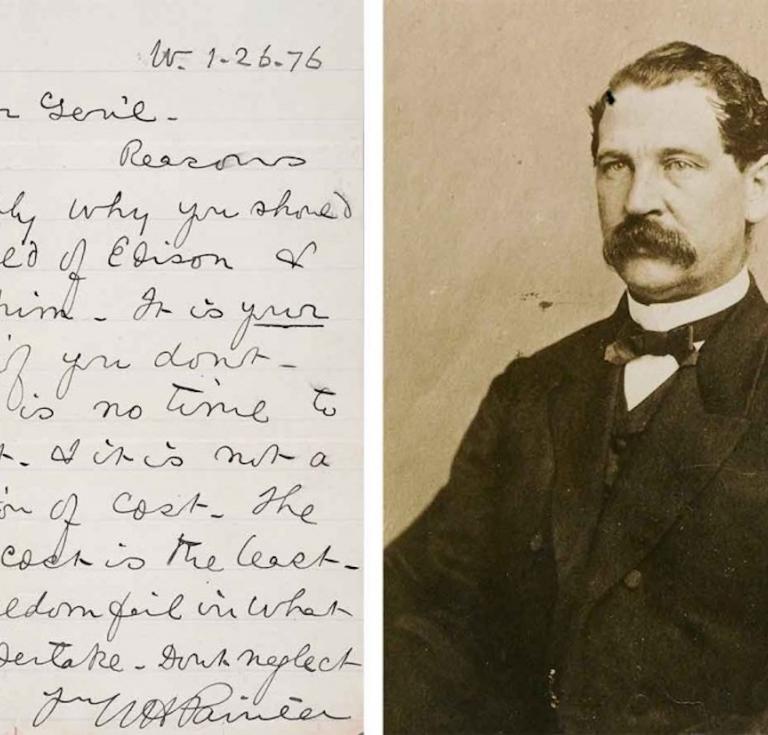 W. 1-26-76
n Gen'l -
Reasons
ly why you should
ed of Edison &
him - It is your
if you dont -
is no time to
t. & it is not a
on of cost - The
cost is the least -
eldom fail in what
dertake - Dont neglect
Painter